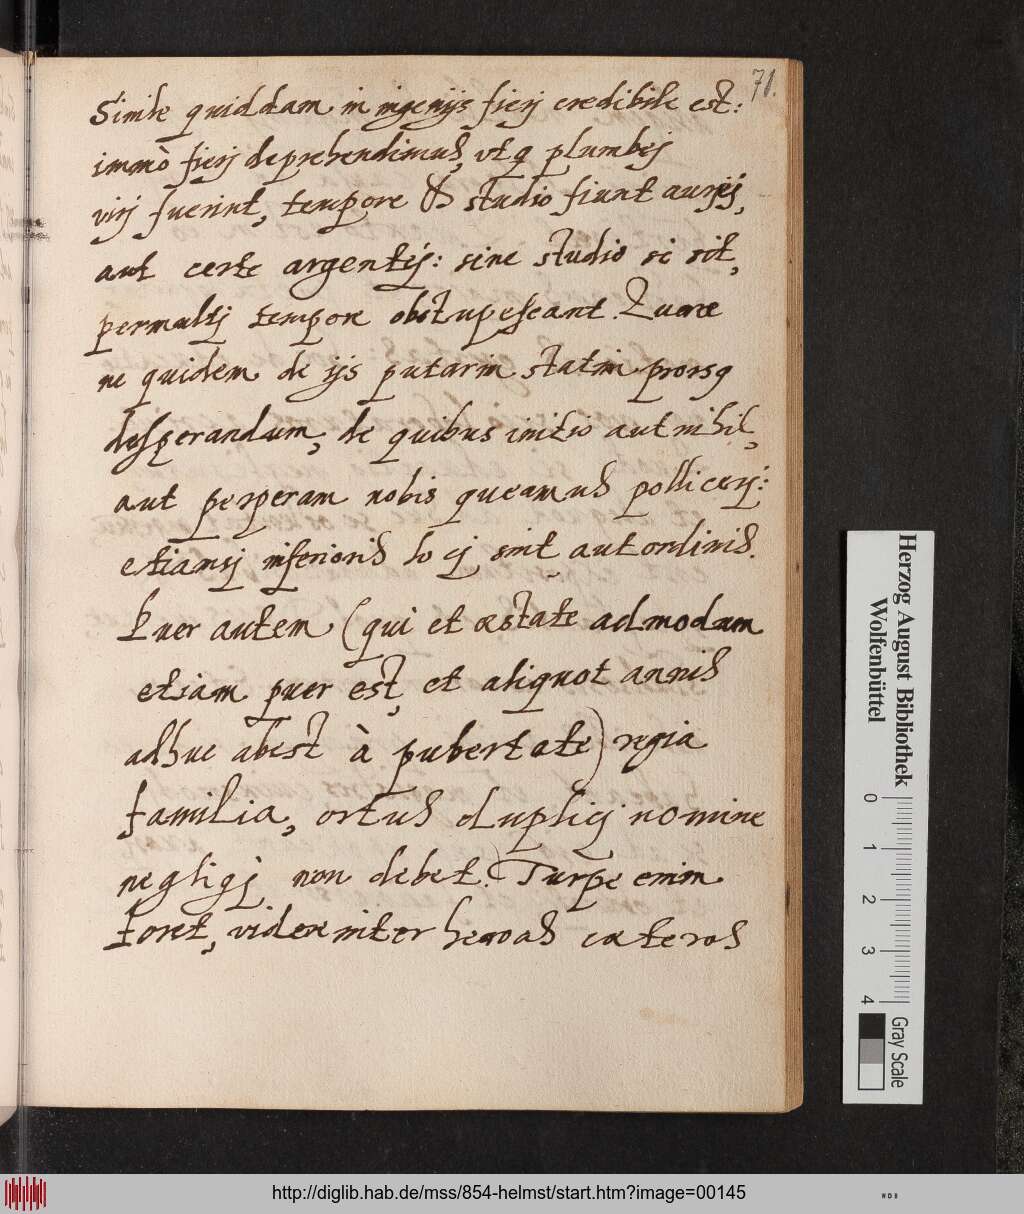 71.
Simile quiddam in ingenijs fierj credibile est:
immò fierj deprehendimus, vtq plumbej
virj fuerint, tempore & studio fiunt aurej,
aut certe argentej: sine studio si sit,
permultj tempore obstupescant. Quare
ne quidem de ijs putarim statim prorsq
desperandum, de quibus initio aut nihil,
aut perperam nobis queamus pollicerj:
etiamsj inferioris locj sint aut ordinis.
Puer autem (qui et ætate admodum
etiam puer est, et aliquot annis
adhuc abest à pubertate) regia
familia, ortus duplicj nomine
negligj non debet. Turpe enim
foret, videre inter heroas cæteros
Herzog August Bibliothek
Wolfenbüttel
0 1 2 3 4
Gray Scale
http://diglib.hab.de/mss/854-helmst/start.htm?image=00145